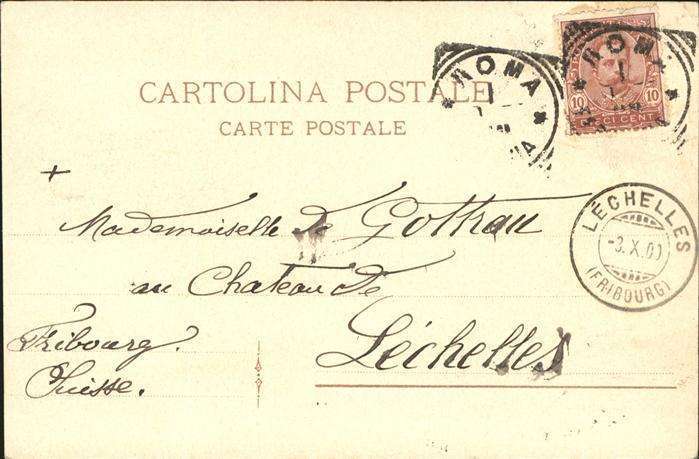 ROMA
ROMA
10 10
CARTOLINA POSTALE
CARTE POSTALE
LÉCHELLES
-3.X.00
(FRIBOURG)
+
Mademoiselle de Gottrau
au Chateau de
Léchelles
Fribourg.
Suisse.